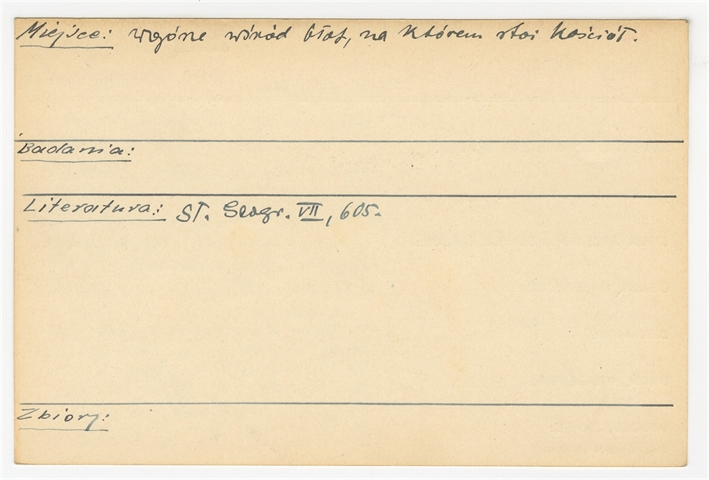 Miejsce: wzgórze wśród błot, na którem stoi kościół.
Badania:
Literatura: Sł. Geogr. VII, 605.
Zbiory: